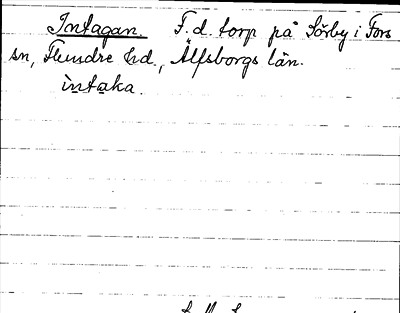 Intagan. F.d. torp på Sörby i Fors
sn, Flundre hd., Älfsborgs län.
ìntaka.